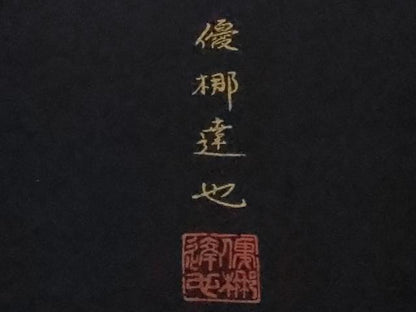 優梛達也
優梛達也